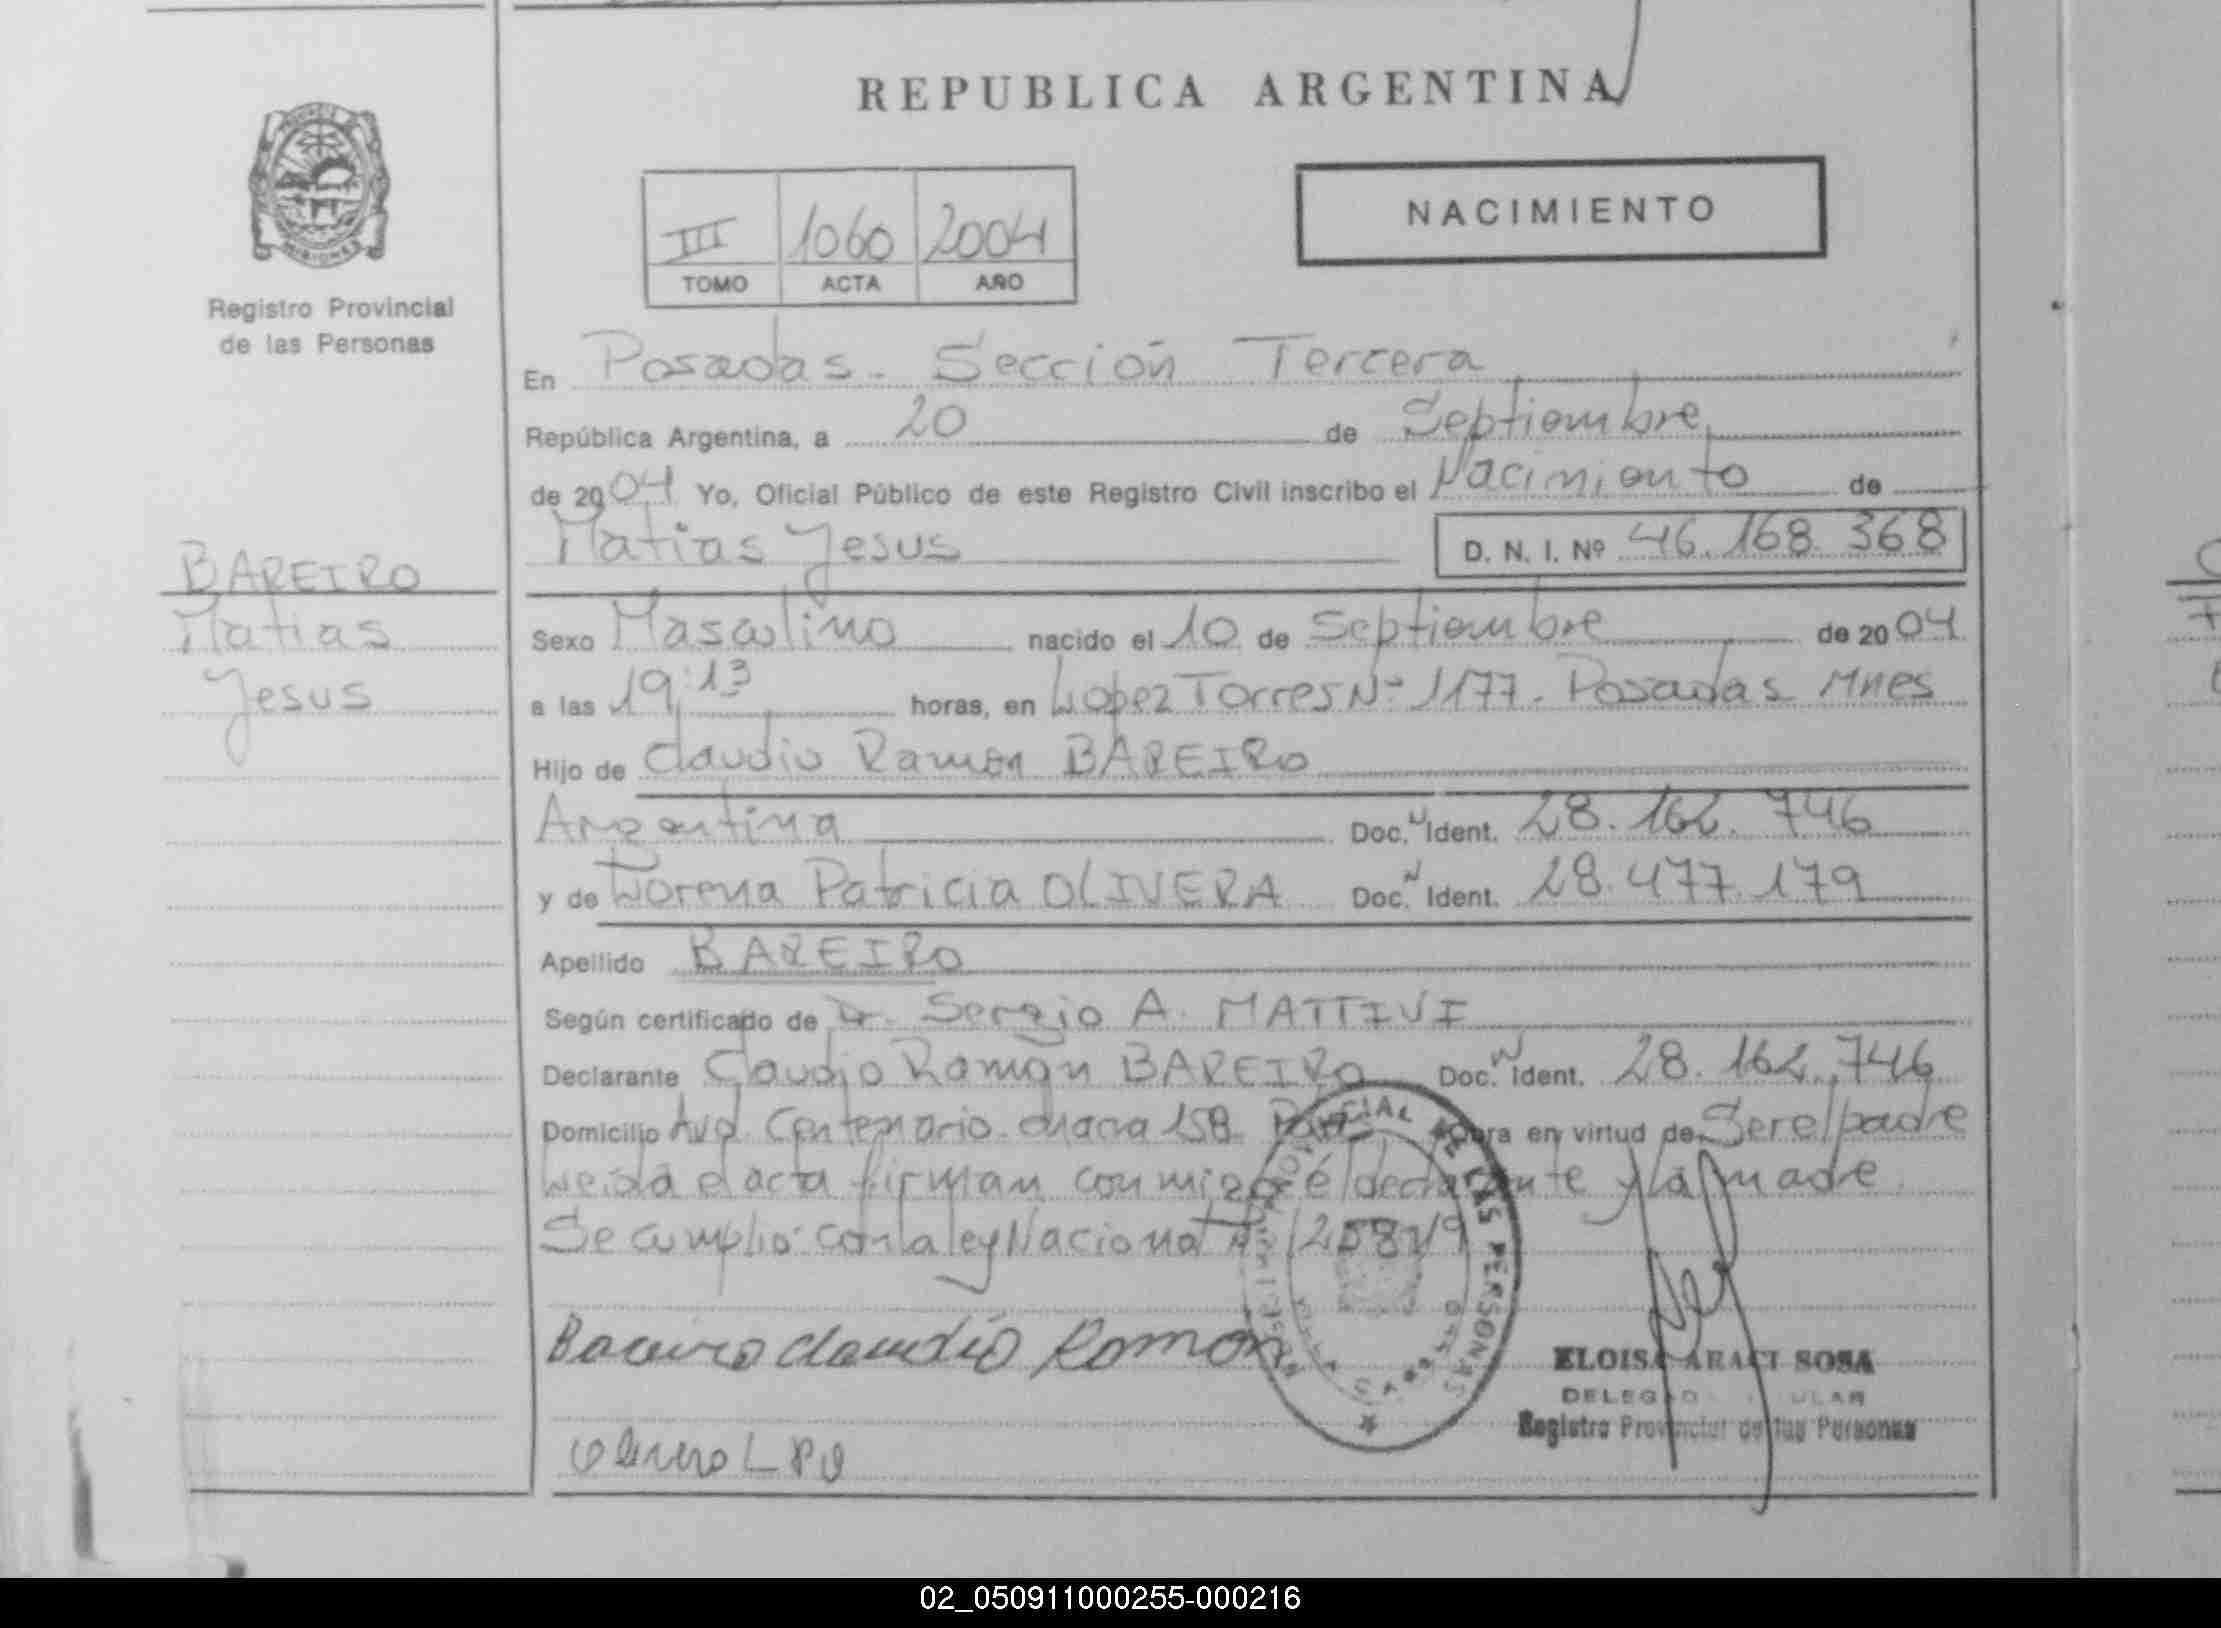 REPUBLICA ARGENTINA
MISIONES
Registro Provincial
de las Personas
III 1060 2004
TOMO ACTA AÑO
NACIMIENTO
En Posadas - Sección Tercera
República Argentina, a 20 de Septiembre
de 2004 Yo, Oficial Público de este Registro Civil inscribo el Nacimiento de
Matias Jesus D. N. I. Nº 46.168.368
BAREIRO
Matias
Jesus
Sexo Masculino nacido el 10 de Septiembre de 2004
a las 19:13 horas, en Lopez Torres Nº 1177 - Posadas Mnes
Hijo de Claudio Ramon BAREIRO
Argentina Doc. Ident. 28.162.746
y de Lorena Patricia OLIVERA Doc. Ident. 28.477.179
Apellido BAREIRO
Según certificado de Dr. Sergio A. MATTIVI
Declarante Claudio Ramón BAREIRO Doc. Ident. 28.162.746
Domicilio Avd. Centenario chacra 158 Obra en virtud de Ser el padre
Leida el acta firman conmigo el declarante y la madre
Se cumplio con la ley Nacional
Bareiro Claudio Ramon
ELOISA ARACI SOSA
Registro Provincial de las Personas
02_050911000255-000216